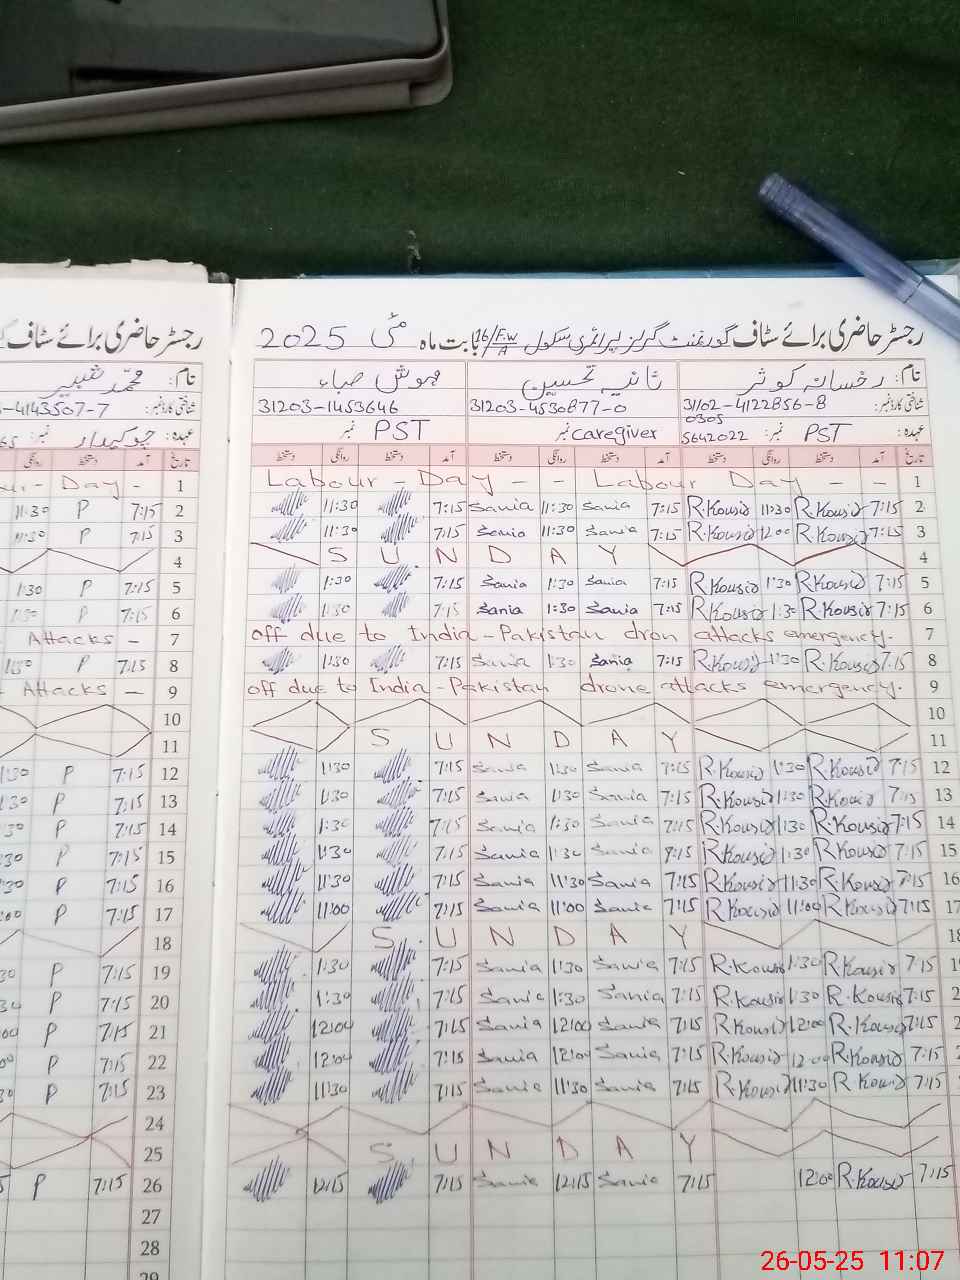 رجسٹر حاضری برائے سٹاف گورنمنٹ گرلز پرائمری سکول 16/F.W/A بابت ماہ مئی 2025
رجسٹر حاضری برائے سٹاف
نام: رخسانہ کوثر ثانیہ تحسین مہوش صباء
نام: محمد شبیر
شناختی کارڈ نمبر: 31102-4122856-8 31203-4530877-0 31203-1453646
شناختی کارڈ نمبر: -4143507-7
عہدہ: PST نمبر: 0305 5642022 caregiver نمبر PST نمبر
عہدہ: چوکیدار نمبر:
تاریخ آمد دستخط روانگی دستخط آمد دستخط روانگی دستخط آمد دستخط روانگی دستخط
تاریخ آمد دستخط روانگی
Day - 1 Labour - Day - - Labour Day - 1
11:30 P 7:15 2 11:30 7:15 Sania 11:30 Sania 7:15 R.Kousir 11:30 R.Kousir 7:15 2
11:30 P 7:15 3 11:30 7:15 Sania 11:30 Sania 7:15 R.Kousir 12:00 R.Kousir 7:15 3
4 S U N D A Y 4
1:30 P 7:15 5 1:30 7:15 Sania 1:30 Sania 7:15 R.Kousir 1:30 R.Kousir 7:15 5
1:30 P 7:15 6 1:30 7:15 Sania 1:30 Sania 7:15 R.Kousir 1:30 R.Kousir 7:15 6
Attacks - 7 off due to India - Pakistan dron attacks emergency. 7
1:30 P 7:15 8 1:30 7:15 Sania 1:30 Sania 7:15 R.Kousir 1:30 R.Kousir 7:15 8
- Attacks - 9 off due to India - Pakistan drone attacks emergency. 9
10 10
11 S U N D A Y 11
1:30 P 7:15 12 1:30 7:15 Sania 1:30 Sania 7:15 R.Kousir 1:30 R.Kousir 7:15 12
1:30 P 7:15 13 1:30 7:15 Sania 1:30 Sania 7:15 R.Kousir 1:30 R.Kousir 7:15 13
:30 P 7:15 14 1:30 7:15 Sania 1:30 Sania 7:15 R.Kousir 1:30 R.Kousir 7:15 14
:30 P 7:15 15 1:30 7:15 Sania 1:30 Sania 7:15 R.Kousir 1:30 R.Kousir 7:15 15
:30 P 7:15 16 11:30 7:15 Sania 11:30 Sania 7:15 R.Kousir 11:30 R.Kousir 7:15 16
:00 P 7:15 17 11:00 7:15 Sania 11:00 Sania 7:15 R.Kousir 11:00 R.Kousir 7:15 17
18 S U N D A Y 18
30 P 7:15 19 1:30 7:15 Sania 1:30 Sania 7:15 R.Kousir 1:30 R.Kousir 7:15
30 P 7:15 20 1:30 7:15 Sania 1:30 Sania 7:15 R.Kousir 1:30 R.Kousir 7:15
00 P 7:15 21 12:00 7:15 Sania 12:00 Sania 7:15 R.Kousir 12:00 R.Kousir 7:15
00 P 7:15 22 12:00 7:15 Sania 12:00 Sania 7:15 R.Kousir 12:00 R.Kousir 7:15
30 P 7:15 23 11:30 7:15 Sania 11:30 Sania 7:15 R.Kousir 11:30 R.Kousir 7:15
24
25 S U N D A Y
P 7:15 26 12:15 7:15 Sania 12:15 Sania 7:15 12:00 R.Kousir 7:15
27
28
29
26-05-25 11:07